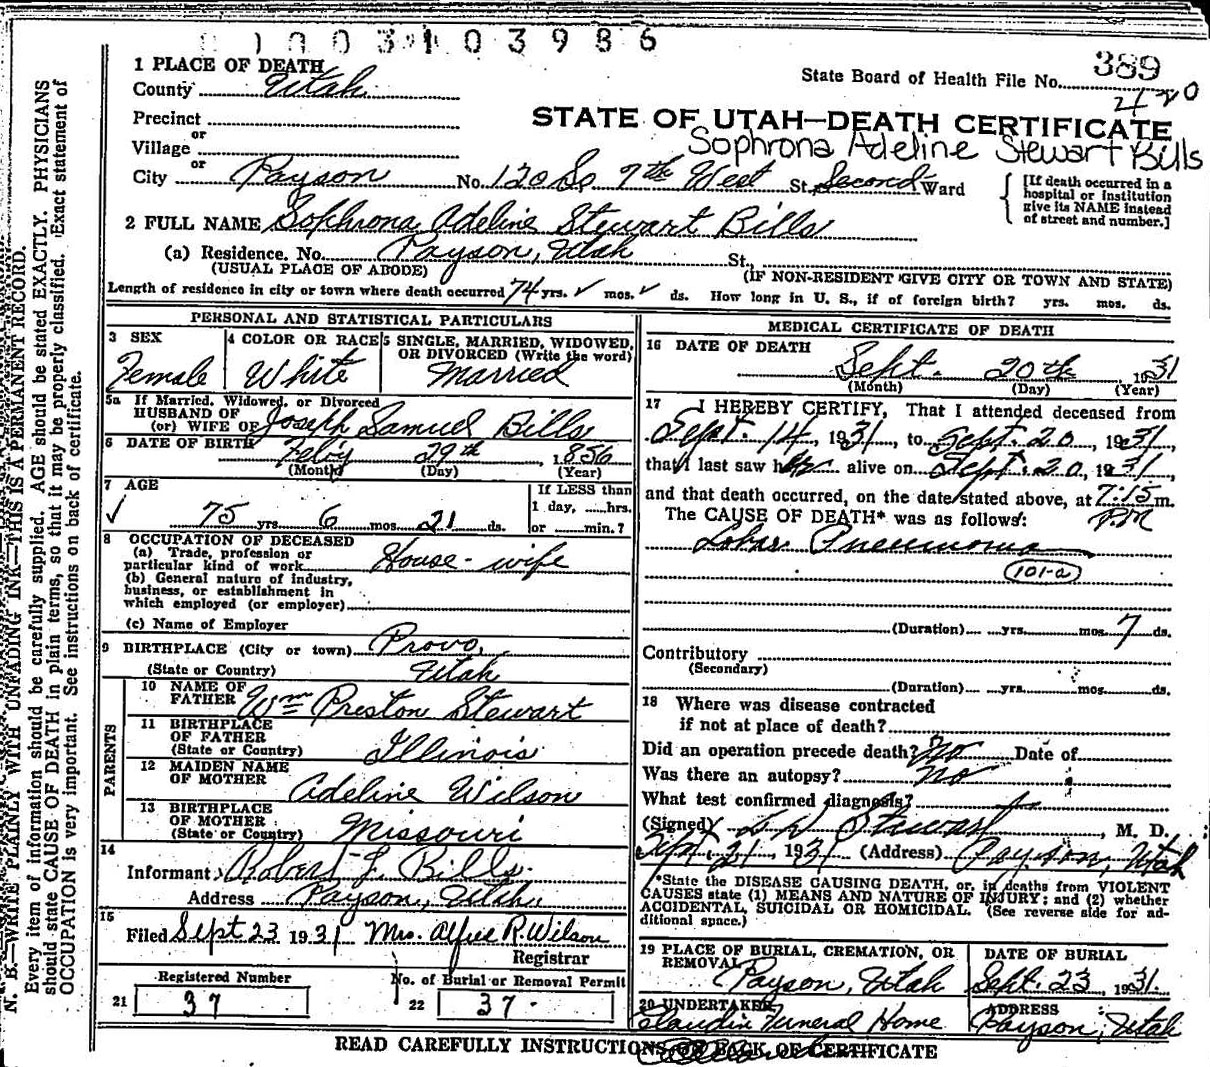 1003103986
State Board of Health File No. 389
420
1 PLACE OF DEATH
County Utah
STATE OF UTAH—DEATH CERTIFICATE
Precinct
or
Sophrona Adeline Stewart Bills
Village
or
City Payson No. 120 So 7th West St. Second Ward
[If death occurred in a
hospital or institution
give its NAME instead
of street and number.]
2 FULL NAME Sophrona Adeline Stewart Bills
(a) Residence. No. Payson, Utah St.
(USUAL PLACE OF ABODE) (IF NON-RESIDENT GIVE CITY OR TOWN AND STATE)
Length of residence in city or town where death occurred 74 yrs. ✓ mos. ✓ ds. How long in U. S., if of foreign birth? yrs. mos. ds.
PERSONAL AND STATISTICAL PARTICULARS
3 SEX
Female
4 COLOR OR RACE
White
5 SINGLE, MARRIED, WIDOWED,
OR DIVORCED (Write the word)
Married
5a If Married, Widowed, or Divorced
HUSBAND OF
(or) WIFE OF Joseph Samuel Bills
6 DATE OF BIRTH Feb'y 29th, 1856
(Month) (Day) (Year)
7 AGE
✓ 75 yrs. 6 mos. 21 ds.
If LESS than
1 day, ......hrs.
or ......min.?
8 OCCUPATION OF DECEASED
(a) Trade, profession or
particular kind of work House-wife
(b) General nature of industry,
business, or establishment in
which employed (or employer)
(c) Name of Employer
9 BIRTHPLACE (City or town) Provo,
(State or Country) Utah
PARENTS
10 NAME OF
FATHER Wm Preston Stewart
11 BIRTHPLACE
OF FATHER
(State or Country) Illinois
12 MAIDEN NAME
OF MOTHER Adeline Wilson
13 BIRTHPLACE
OF MOTHER
(State or Country) Missouri
14
Informant Robert J. Bills
Address Payson, Utah
15
Filed Sept 23 1931 Mrs. Alfred R. Wilson
Registrar
Registered Number
21 37
No. of Burial or Removal Permit
22 37
MEDICAL CERTIFICATE OF DEATH
16 DATE OF DEATH
Sept. 20th 1931
(Month) (Day) (Year)
17 I HEREBY CERTIFY, That I attended deceased from
Sept. 14, 1931, to Sept. 20, 1931
that I last saw her alive on Sept. 20, 1931,
and that death occurred, on the date stated above, at 7:15 m.
The CAUSE OF DEATH* was as follows: P.M
Lobar Pneumonia
101-a
(Duration) yrs. mos. 7 ds.
Contributory
(Secondary)
(Duration) yrs. mos. ds.
18 Where was disease contracted
if not at place of death?
Did an operation precede death? No Date of
Was there an autopsy? no
What test confirmed diagnosis?
(Signed) Stewart, M. D.
Sept. 21 1931 (Address) Payson, Utah
*State the DISEASE CAUSING DEATH, or, in deaths from VIOLENT
CAUSES state (1) MEANS AND NATURE OF INJURY; and (2) whether
ACCIDENTAL, SUICIDAL OR HOMICIDAL. (See reverse side for ad-
ditional space.)
19 PLACE OF BURIAL, CREMATION, OR
REMOVAL
Payson, Utah
DATE OF BURIAL
Sept. 23, 1931.
20 UNDERTAKER
Claudin Funeral Home
ADDRESS
Payson, Utah
READ CAREFULLY INSTRUCTIONS ON BACK OF CERTIFICATE
N. B.—WRITE PLAINLY WITH UNFADING INK—THIS IS A PERMANENT RECORD.
Every item of information should be carefully supplied. AGE should be stated EXACTLY. PHYSICIANS
should state CAUSE OF DEATH in plain terms, so that it may be properly classified. Exact statement of
OCCUPATION is very important. See instructions on back of certificate.